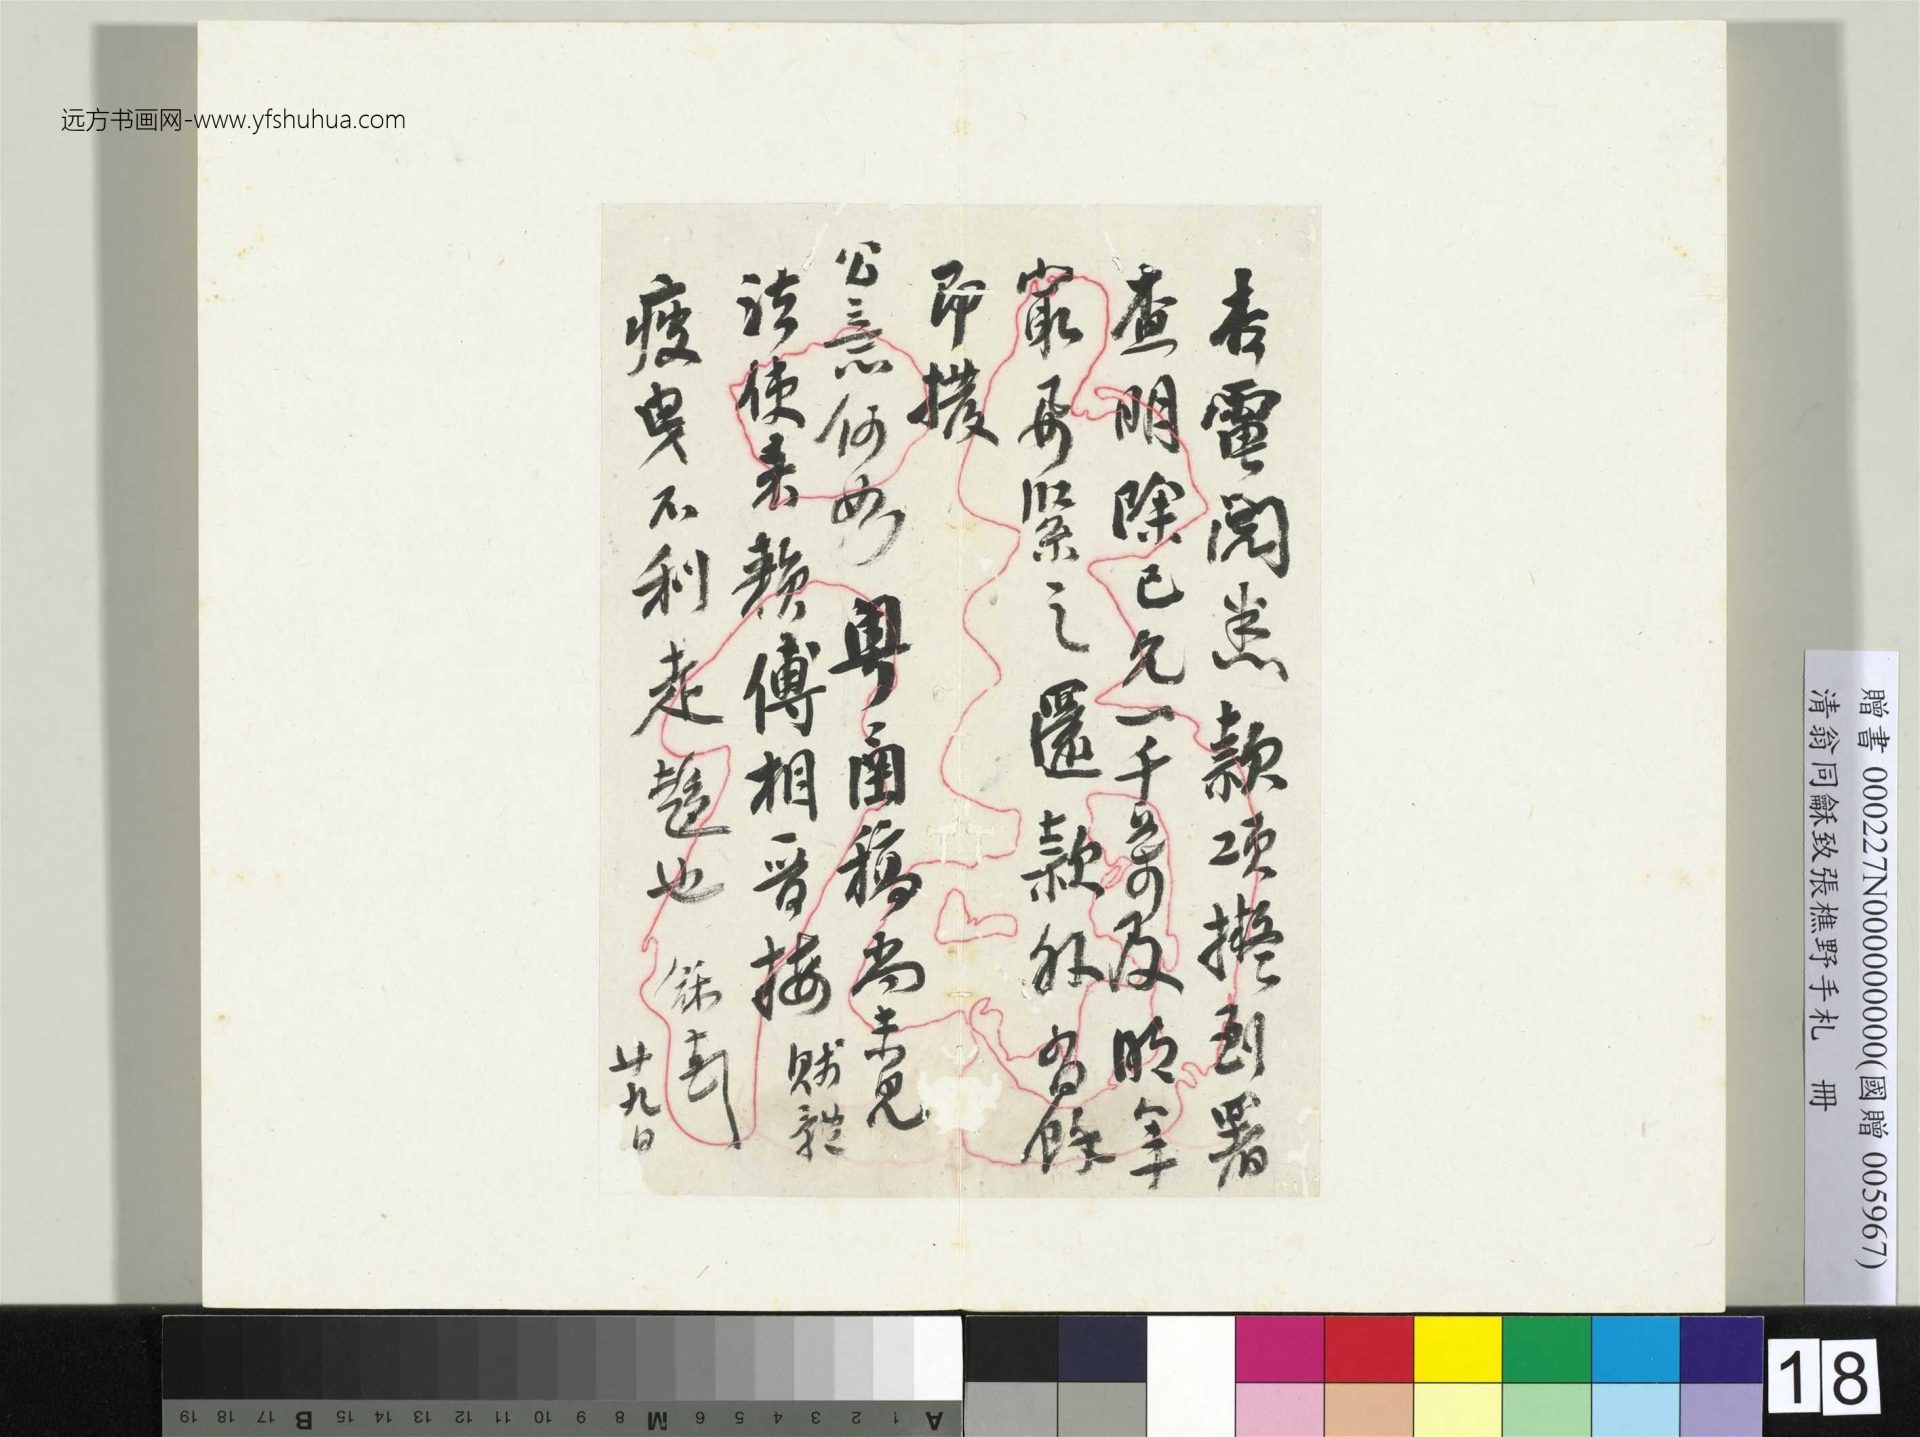 远方书画网-www.yfshuhua.com
杏電閱悉款項擬到署
查明除已允一千萬及明年
最要緊之還款外有餘
即撥
公意何如 粵電稿尚未見
法使來賴傅相晉接 賤體
疲曳不利走趨也
廿九日
贈書 000227N000000000(國贈 005967)
清翁同龢致張樵野手札 冊
A 1 2 3 4 5 6 M 8 9 10 11 12 13 14 15 B 17 18 19
18